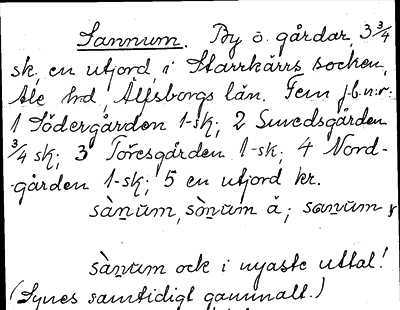 Sannum. By o. gårdar, 3 3/4
sk, en utjord, i Starrkärrs socken,
Ale hrd, Älfsborgs län. Fem j.b.n:r:
1 Södergården 1-sk; 2 Smedsgården
3/4 sk; 3 Toresgården 1-sk; 4 Nord-
-gården 1-sk; 5 en utjord kr.
sànum, sònum å; sanum
sànum ock i nyaste uttal!
(Synes samtidigt gammalt.)